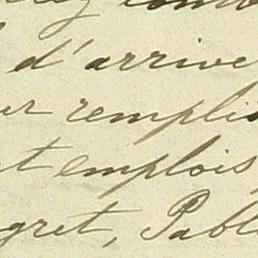 d'arrive
ur remplis
t emplois
gret, Pabl